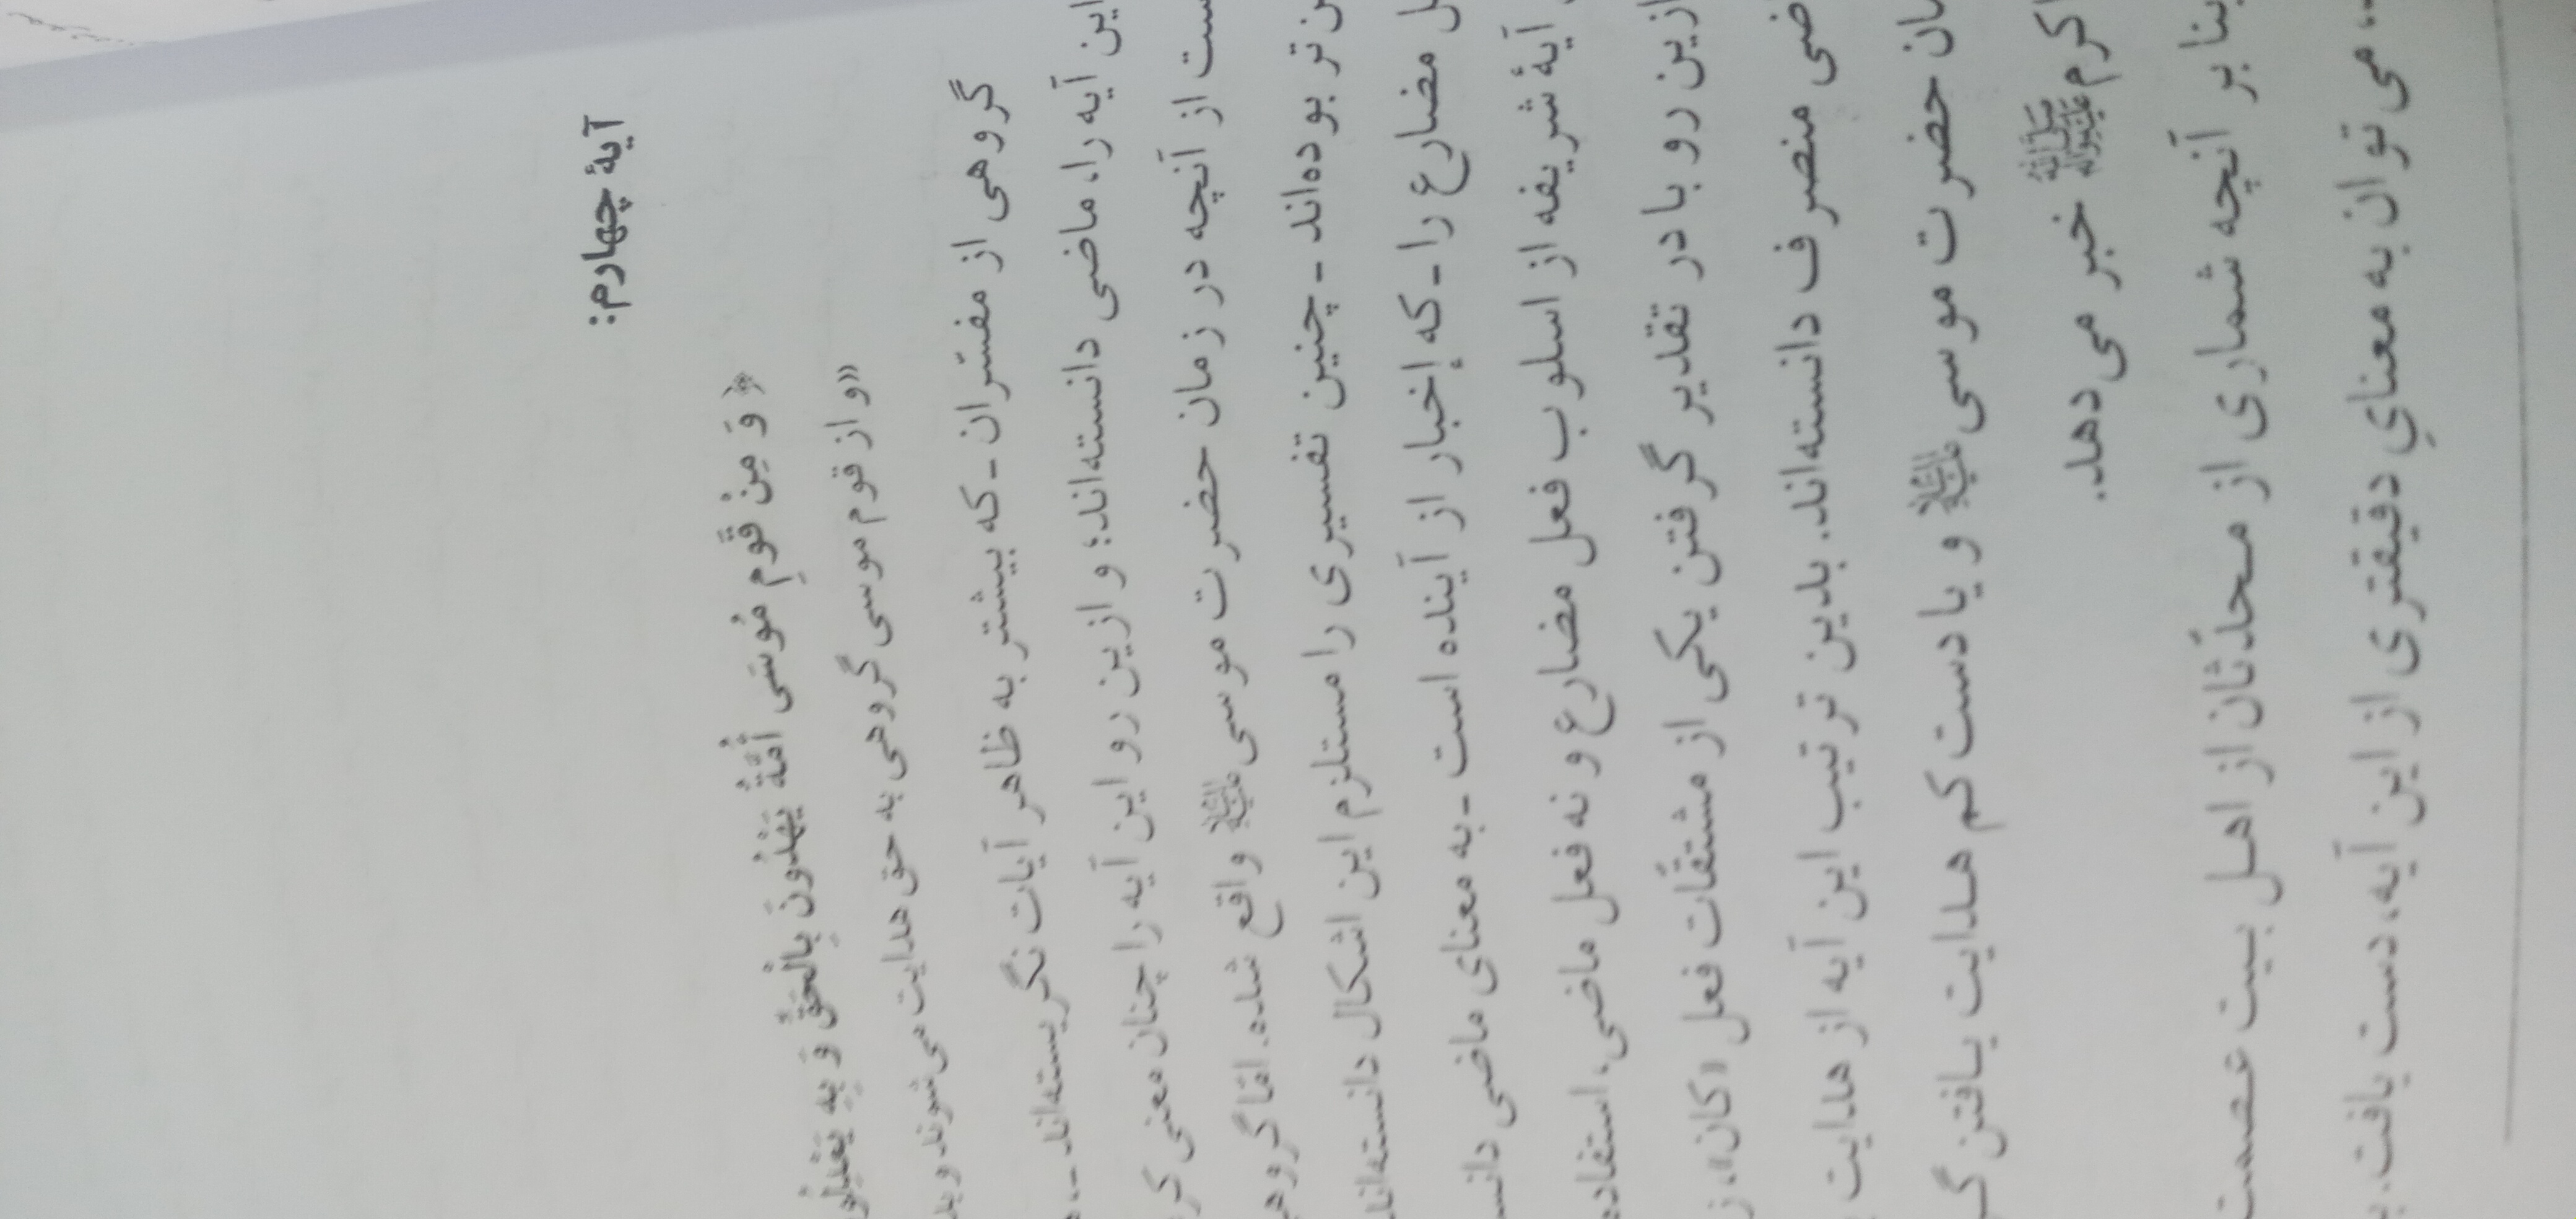 آیهٔ چهارم:
﴿ وَ مِنْ قَوْمِ مُوسَى أُمَّةٌ يَهْدُونَ بِالْحَقِّ وَ بِهِ
«و از قوم موسی گروهی به حق هدایت می‌شوند و
گروهی از مفسّران ـ که بیشتر به ظاهر آیات نگریسته‌اند ـ،
این آیه را، ماضی دانسته‌اند؛ و ازین رو این آیه را چنان معنی
ست از آنچه در زمان حضرت موسی علیه‌السلام واقع شده. امّا
ن تر بوده‌اند ـ چنین تفسیری را مستلزم این اشکال دانسته‌اند
ل مضارع را ـ که إخبار از آینده است ـ به معنای ماضی
آیهٔ شریفه از اسلوب فعل مضارع و نه فعل ماضی، استفاده
ازین رو با در تقدیر گرفتن یکی از مشتقّات فعل «کان»، ز
ضی منصرف دانسته‌اند. بدین ترتیب این آیه از هدایت
حضرت موسی علیه‌السلام و یا دست کم هدایت یافتن
اکرم ﷺ خبر می‌دهد.
بنا بر آنچه شماری از محدّثان از اهل بیت عصمت
می‌توان به معنایِ دقیقتری از این آیه، دست یافت.